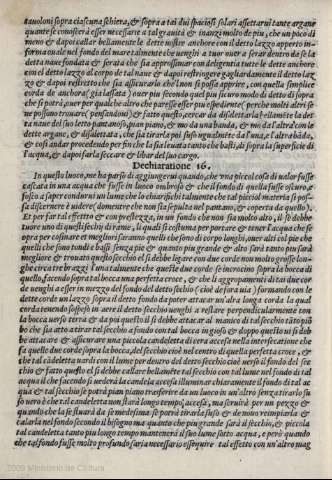 tauoloni sopra ciascuna schiera, & sopra a tai dui spaciosi solari assettarui tante argane
quante se conoscerà esser necessarie a tal grauità & inanzi molto de piu, che un poco di
meno & dapoi callar bellamente le dette nostre anchore con il detto lazzo apperto in-
forma di un occhio nel fondo del mare, ouer aiutarsi a far entrar dentro da se la
detta naue fondata & serata che sia approssimar con deligentia tutte le dette anchore
con el detto lazzo al corpo de tal naue & dapoi restringere gagliardamente il detto laz-
zo & dapoi restretto che sia assicurarlo che'l non si possa apprire, con quella simplice
corda de anchora (gia lassata) ouer piu secondo quel piu sicuro modo di detto di sopra
che si potrà, ouer per qualche altro che paresse esser piu espediente (perche molti altri se
ne possono trouare (pensandoui) & fatto questo, cercar da disasettarla bellamente la det
ta naue dal suo letto pantanoso, pian piano, & mo da una banda, & mo da l'altra con le
dette argane, & disaletada, che sia tirarla poi suso egualmente da l'una, e l'altra bāda,
& cosi andar procedendo per fin che la sia leuata tanto che basti, di sopra la superficie di
l'acqua, & dapoi farla seccare & librar del suo cargo.
Dechiaratione 16.
In questo luoco, me ha parso di aggiungerui quando, che vna piccol cosa di ualor fusse
cascata in una acqua che fusse in luoco ombroso & che il fondo di quella fusse oscuro, e
fosco a saper condurui un lume, che lo chiarisca talmente che tal piccol materia si pos-
sa discernere è uedere (domentre che non sia sepulta nel pantano, & coperta da quello),
Et per far tal effetto & con prestezza, in un fondo che non sia molto alto, il se debbe
tuore uno di questi secchi di ramo, li quali si costuma per portare & tener l'acqua che se
opra per cosinare et magnare, & pero saranno quelli che sono di corpo longhi, ouer alti cosi piu che
quelli che sono tondi e bassi senza pie & quanto piu grande & alto sarà tanto piu sarà
megliore & trouato questo secchio el si debbe ligare con due corde non molto grosse lon-
ghe circa tre brazzi l'una talmente che queste due corde se incrocino sopra la bocca di
quello, facendo sopra tal bocca una perfetta croce, & che li aggroppamenti di tai due cor
de uenghi a esser in mezzo del fondo del detto secchio (cioè de fora uia) formando con le
dette corde un lazzo sopra il detto fondo da poter attacar un'altra longa corda la qual
corda tenendo sospeso in aere il detto secchio uenghi a restare perpendicularmente con
la bocca uerso terra & da poi questo el si debbe attacar al manico di tal secchio tāto piō
bo che sia atto a tirar tal secchio a fondo con tal bocca in gioso & doppo questo ui si deb
be attacare & assicurare una piccola candeletta di cera accesa nella intersecatione che
fa quelle due corde sopra la bocca, del secchio cioè nel centro di quella perfetta croce, &
che tal candeletta uardi con il lume per dentro del detto secchio cioè uerso il fondo del sec
chio & fatto questo el si debbe callare bellamēte tal secchio con tal lume nel fondo di tal
acqua il che facendo si uederà la candela accesa illuminar chiaramente il fondo di tal ac
qua & tal secchio se potrà pian piano trasferire da un luoco in un'altro senza tirarlo su-
so uero è che tal candeletta non starà longo tempo accesa, ma scuirà per un pezzo &
quando che la se stuarà da se medesima se potrà tirarla suso & de nouo reimpiarla &
calarla nel fondo secondo il bisogno ma quanto che piu grande sarà il secchio, & piccola
tal candeletta tanto piu longo tempo mantenerà il suo lume sotto acqua, e però quando
che tal fondo fusse molto profundo saria necessario essequire tal effetto con un'altro mag
2009 Ministerio de Cultura